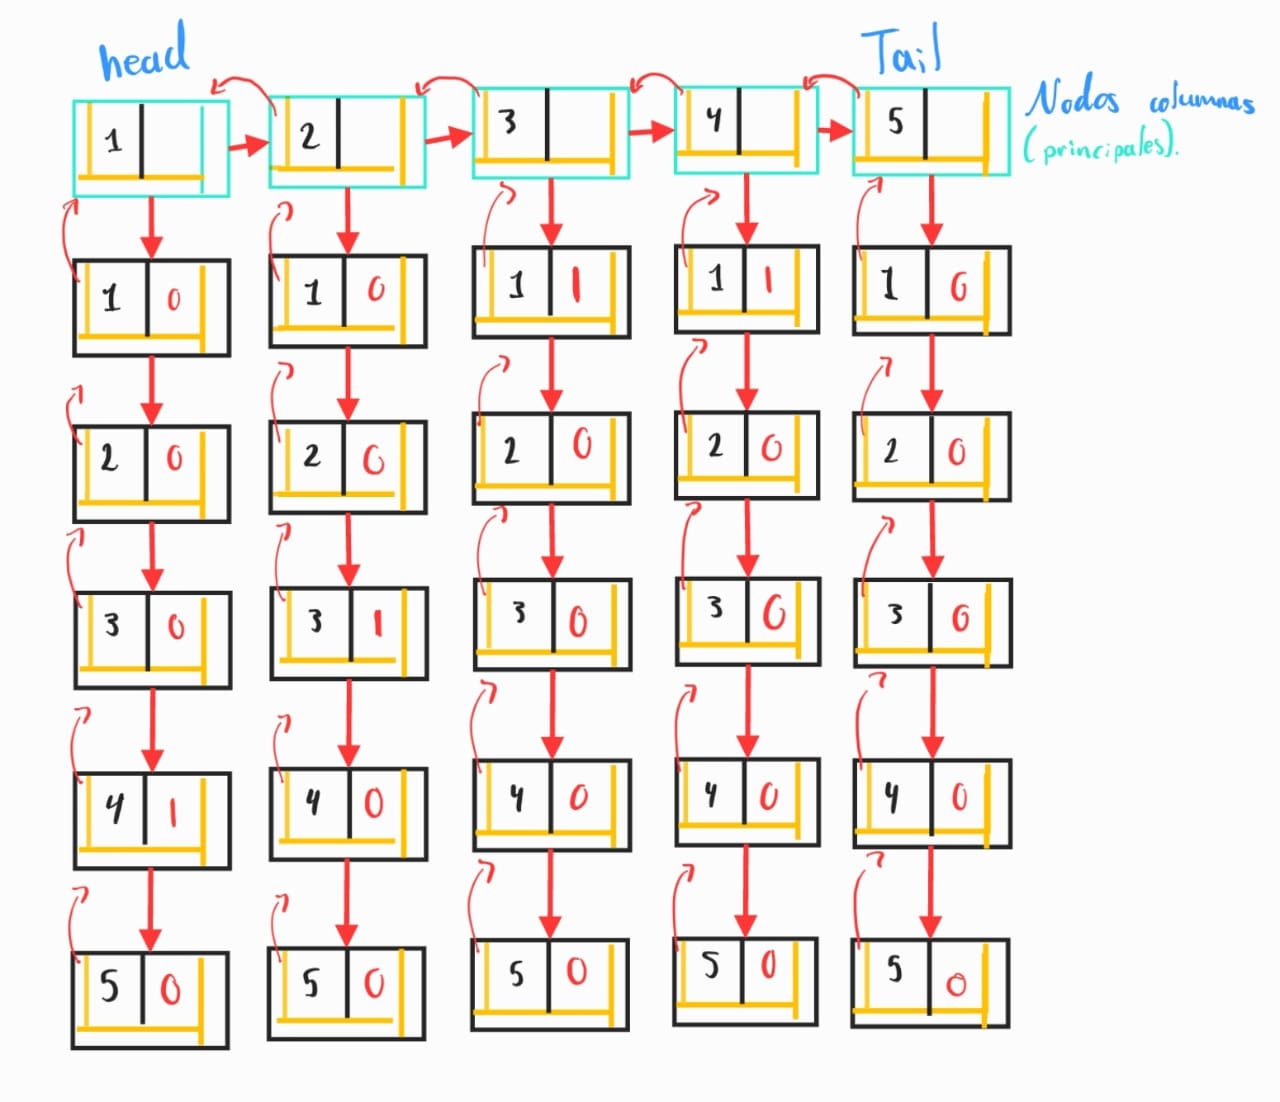 head
Tail
Nodos columnas
(principales).
1 2 3 4 5
1 0 1 0 1 1 1 1 1 0
2 0 2 0 2 0 2 0 2 0
3 0 3 1 3 0 3 0 3 0
4 1 4 0 4 0 4 0 4 0
5 0 5 0 5 0 5 0 5 0